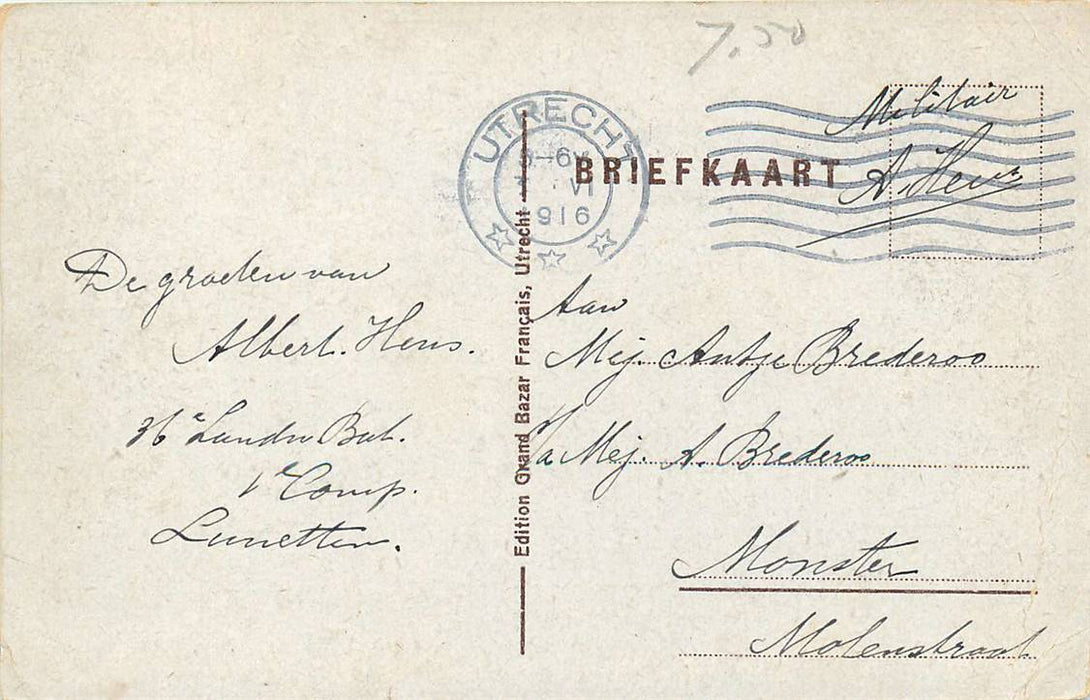 7.50
UTRECHT
-6V
VI
1916
BRIEFKAART
Militair
A. Hens
De groeten van
Albert. Hens.
36e Landw Bat.
1e Comp.
Lunetten.
Edition Grand Bazar Français, Utrecht
Aan
Mej. Antje Brederoo
p/a Mej. A. Brederoo
Monster
Molenstraat